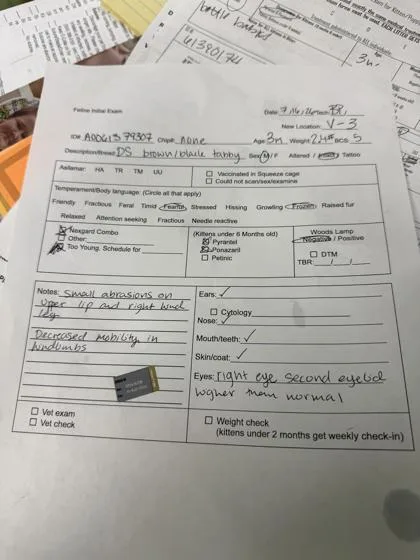 bottle babies
61390174
3m
Feline Initial Exam
Date: 7.16.26 Tech: BR
New Location: V-3
ID#: A00613 79307 Chip#: none Age 3m Weight 2.4# BCS 5
Description/Breed DS brown/black tabby Sex M / F Altered / Intact / Tattoo
Asilomar: HA TR TM UU
☐ Vaccinated in Squeeze cage
☐ Could not scan/sex/examine
Temperament/Body language: (Circle all that apply)
Friendly Fractious Feral Timid Fearful Stressed Hissing Growling Frozen Raised fur
Relaxed Attention seeking Fractious Needle reactive
☒ Nexgard Combo
☐ Other:
☒ Too Young, Schedule for
(Kittens under 6 Months old)
☒ Pyrantel
☒ Ponazuril
☐ Petinic
Woods Lamp
Negative / Positive
☐ DTM
TBR: __/__/__
Notes: Small abrasions on
upper lip and right hind
leg
Decreased mobility in
hindlimbs
Ears: ✓
☐ Cytology
Nose: ✓
Mouth/teeth: ✓
Skin/coat: ✓
Eyes: right eye second eyelid
higher than normal
☐ Vet exam
☐ Vet check
☐ Weight check
(kittens under 2 months get weekly check-in)